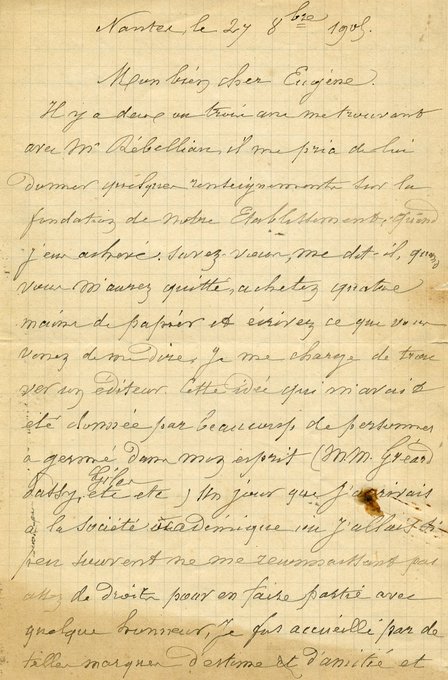 Nantes, le 27 8bre 1905.
Mon bien cher Eugène.
Il y a deux ou trois ans me trouvant
avec Mr Rébellian, il me pria de lui
donner quelques renseignements sur la
fondation de notre Etablissement, quand
j'eus achevé. savez-vous, me dit-il, quand
vous m'aurez quitté, achetez quatre
mains de papier et écrivez ce que vous
venez de me dire, je me charge de trou
ver un éditeur. Cette idée qui m'avait
été donnée par beaucoup de personnes
a germé dans mon esprit (M.M. Gréard
etc etc) Un jour que j'arrivais
à la société académique où j'allais
peu souvent ne me reconnaissant pas
assez de droits pour en faire partie avec
quelque honneur, je fus accueilli par de
telles marques d'estime et d'amitié et